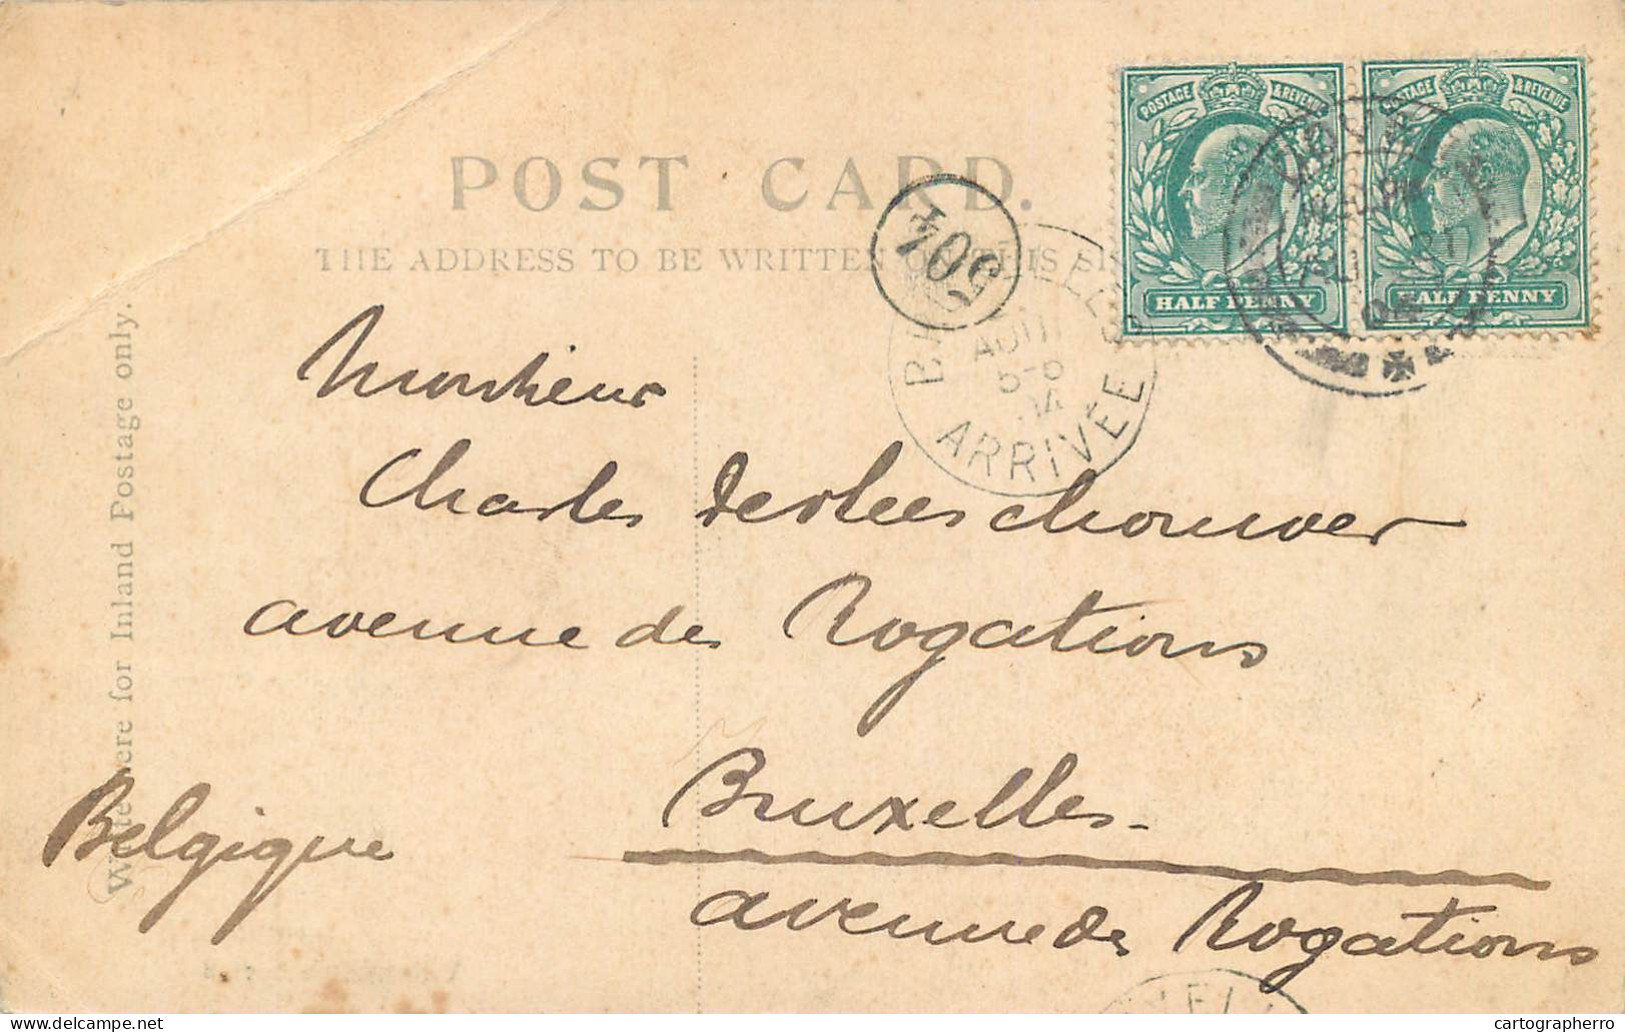 POST CARD.
THE ADDRESS TO BE WRITTEN ON THIS
Write here for Inland Postage only.
POSTAGE & REVENUE
HALF PENNY
POSTAGE & REVENUE
HALF PENNY
504
BRUXELLES
AOUT
5-6
04
ARRIVÉE
Monsieur
Charles
avenue des Rogations
Bruxelles.
Belgique
avenue des Rogations
delcampe.net
cartographerro